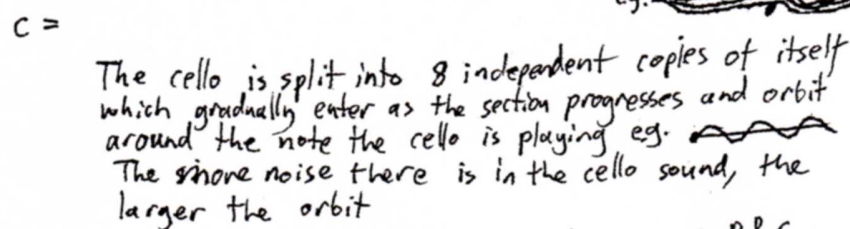 eg.
C =
The cello is split into 8 independent copies of itself
which gradually enter as the section progresses and orbit
around the note the cello is playing eg.
The more noise there is in the cello sound, the
larger the orbit